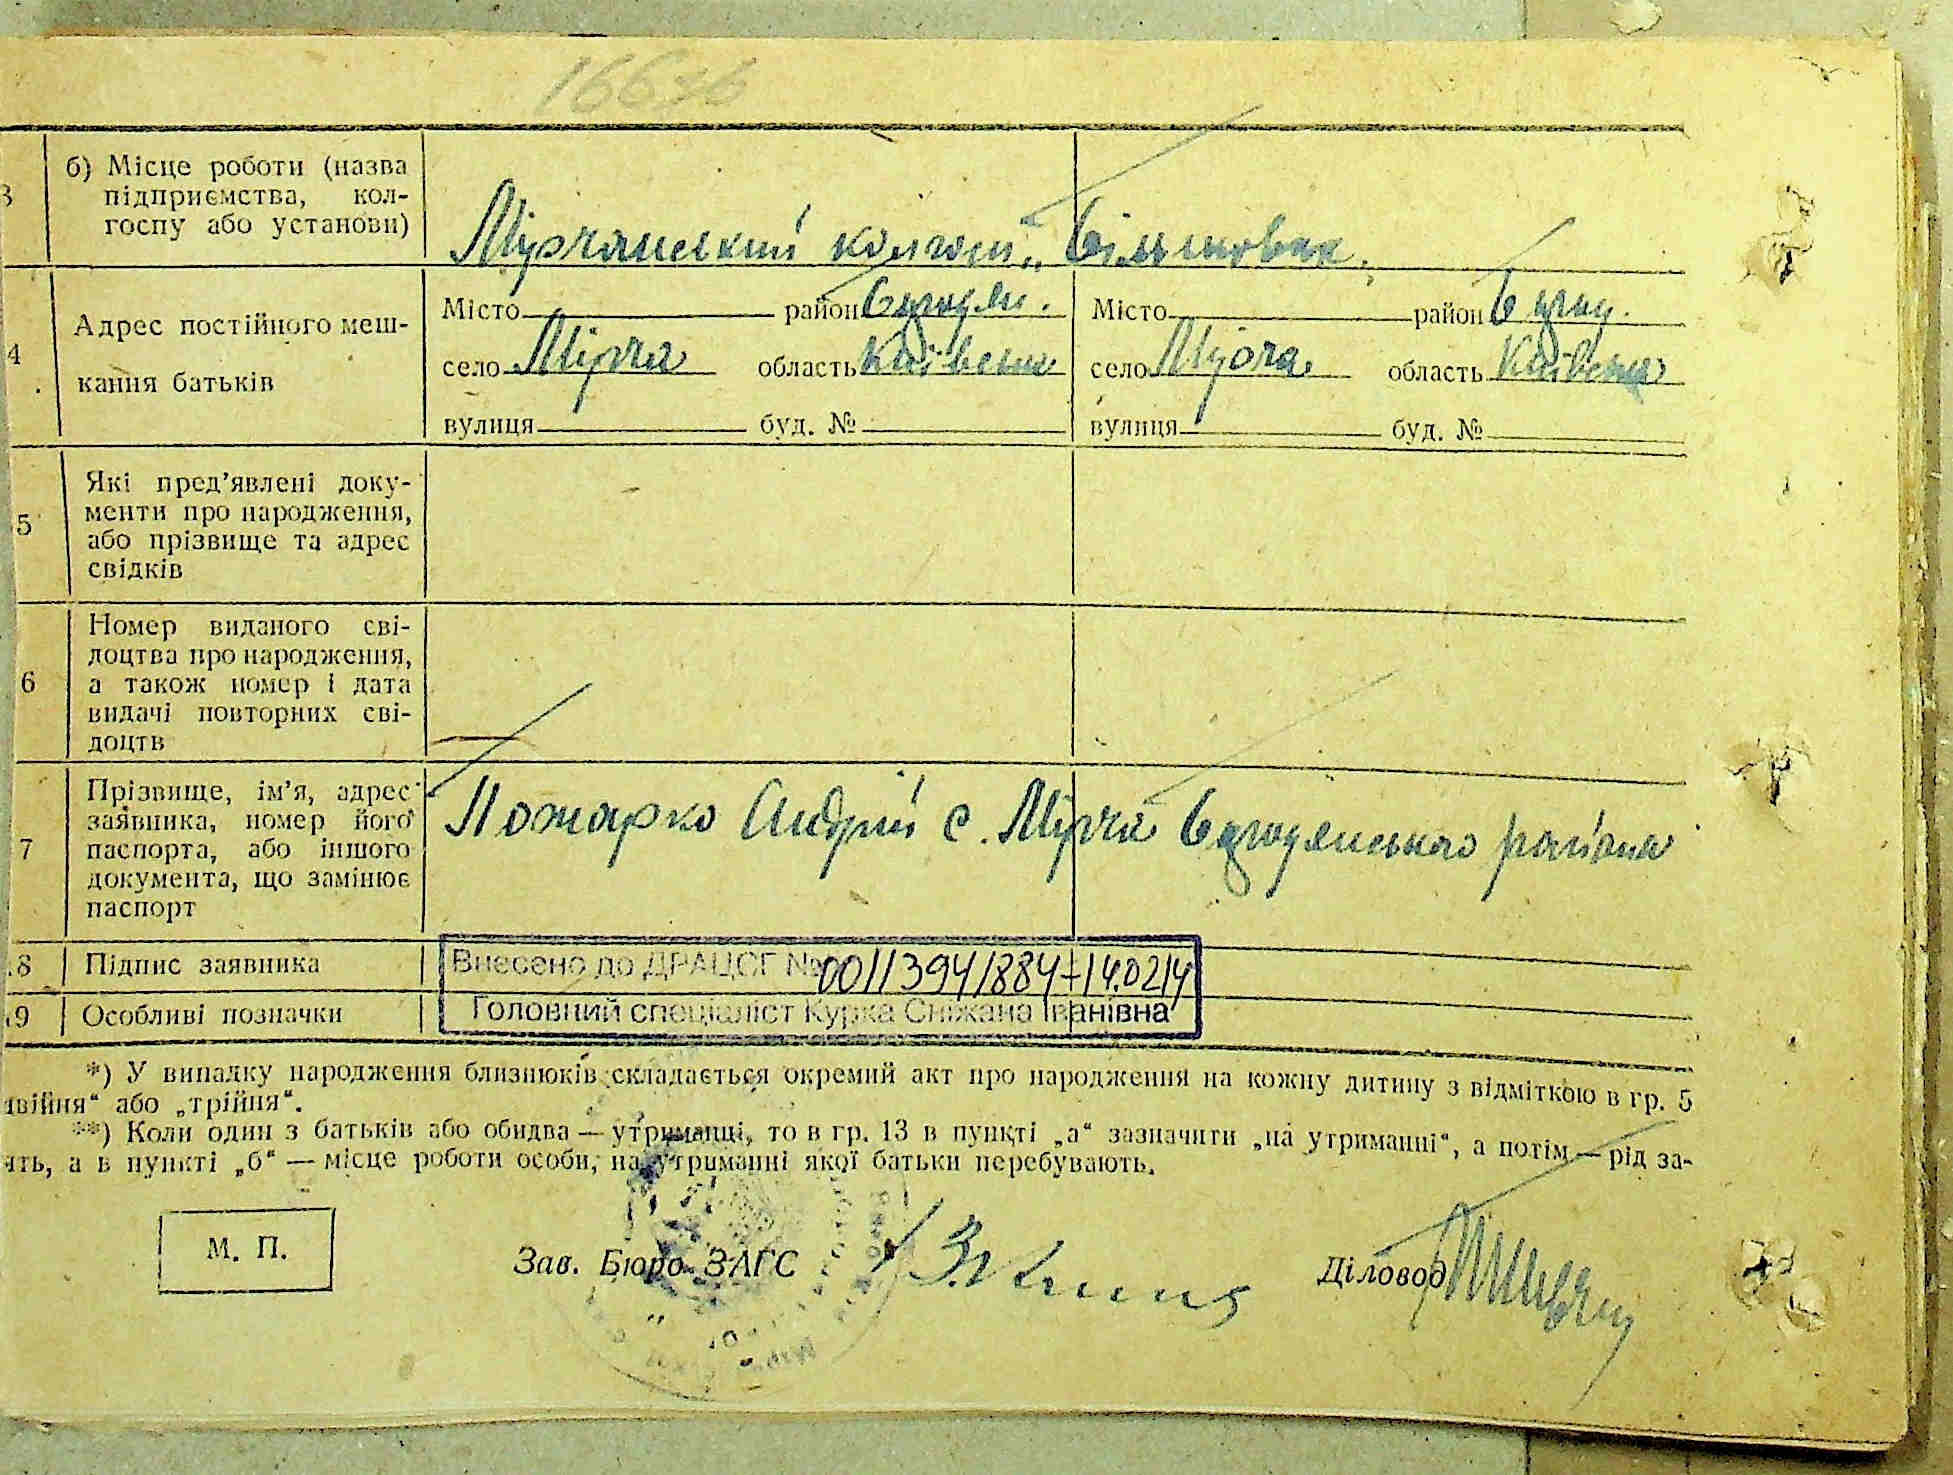 166зв
3 б) Місце роботи (назва
підприємства, кол-
госпу або установи)
Мирчанський колгосп „Більшовик"
4 Адрес постійного меш-
кання батьків
Місто район Бородян. Місто район Бород.
село Мирча область Київська село Мирча область Київська
вулиця буд. № вулиця буд. №
5 Які пред'явлені доку-
менти про народження,
або прізвище та адрес
свідків
6 Номер виданого сві-
доцтва про народження,
а також номер і дата
видачі повторних сві-
доцтв
7 Прізвище, ім'я, адрес
заявника, номер його
паспорта, або іншого
документа, що замінює
паспорт
Пожарко Андрій с. Мирча Бородянського району
8 Підпис заявника
Внесено до ДРАЦСГ № 00113941884 14.02.14
9 Особливі позначки
Головний спеціаліст Курка Сніжана Іванівна
*) У випадку народження близнюків складається окремий акт про народження на кожну дитину з відміткою в гр. 5
двійня" або „трійня".
**) Коли один з батьків або обидва — утриманці, то в гр. 13 в пункті „а" зазначити „на утриманні", а потім — рід за-
ять, а в пункті „б" — місце роботи особи, на утриманні якої батьки перебувають.
М. П.
Зав. Бюро ЗАГС
Діловод